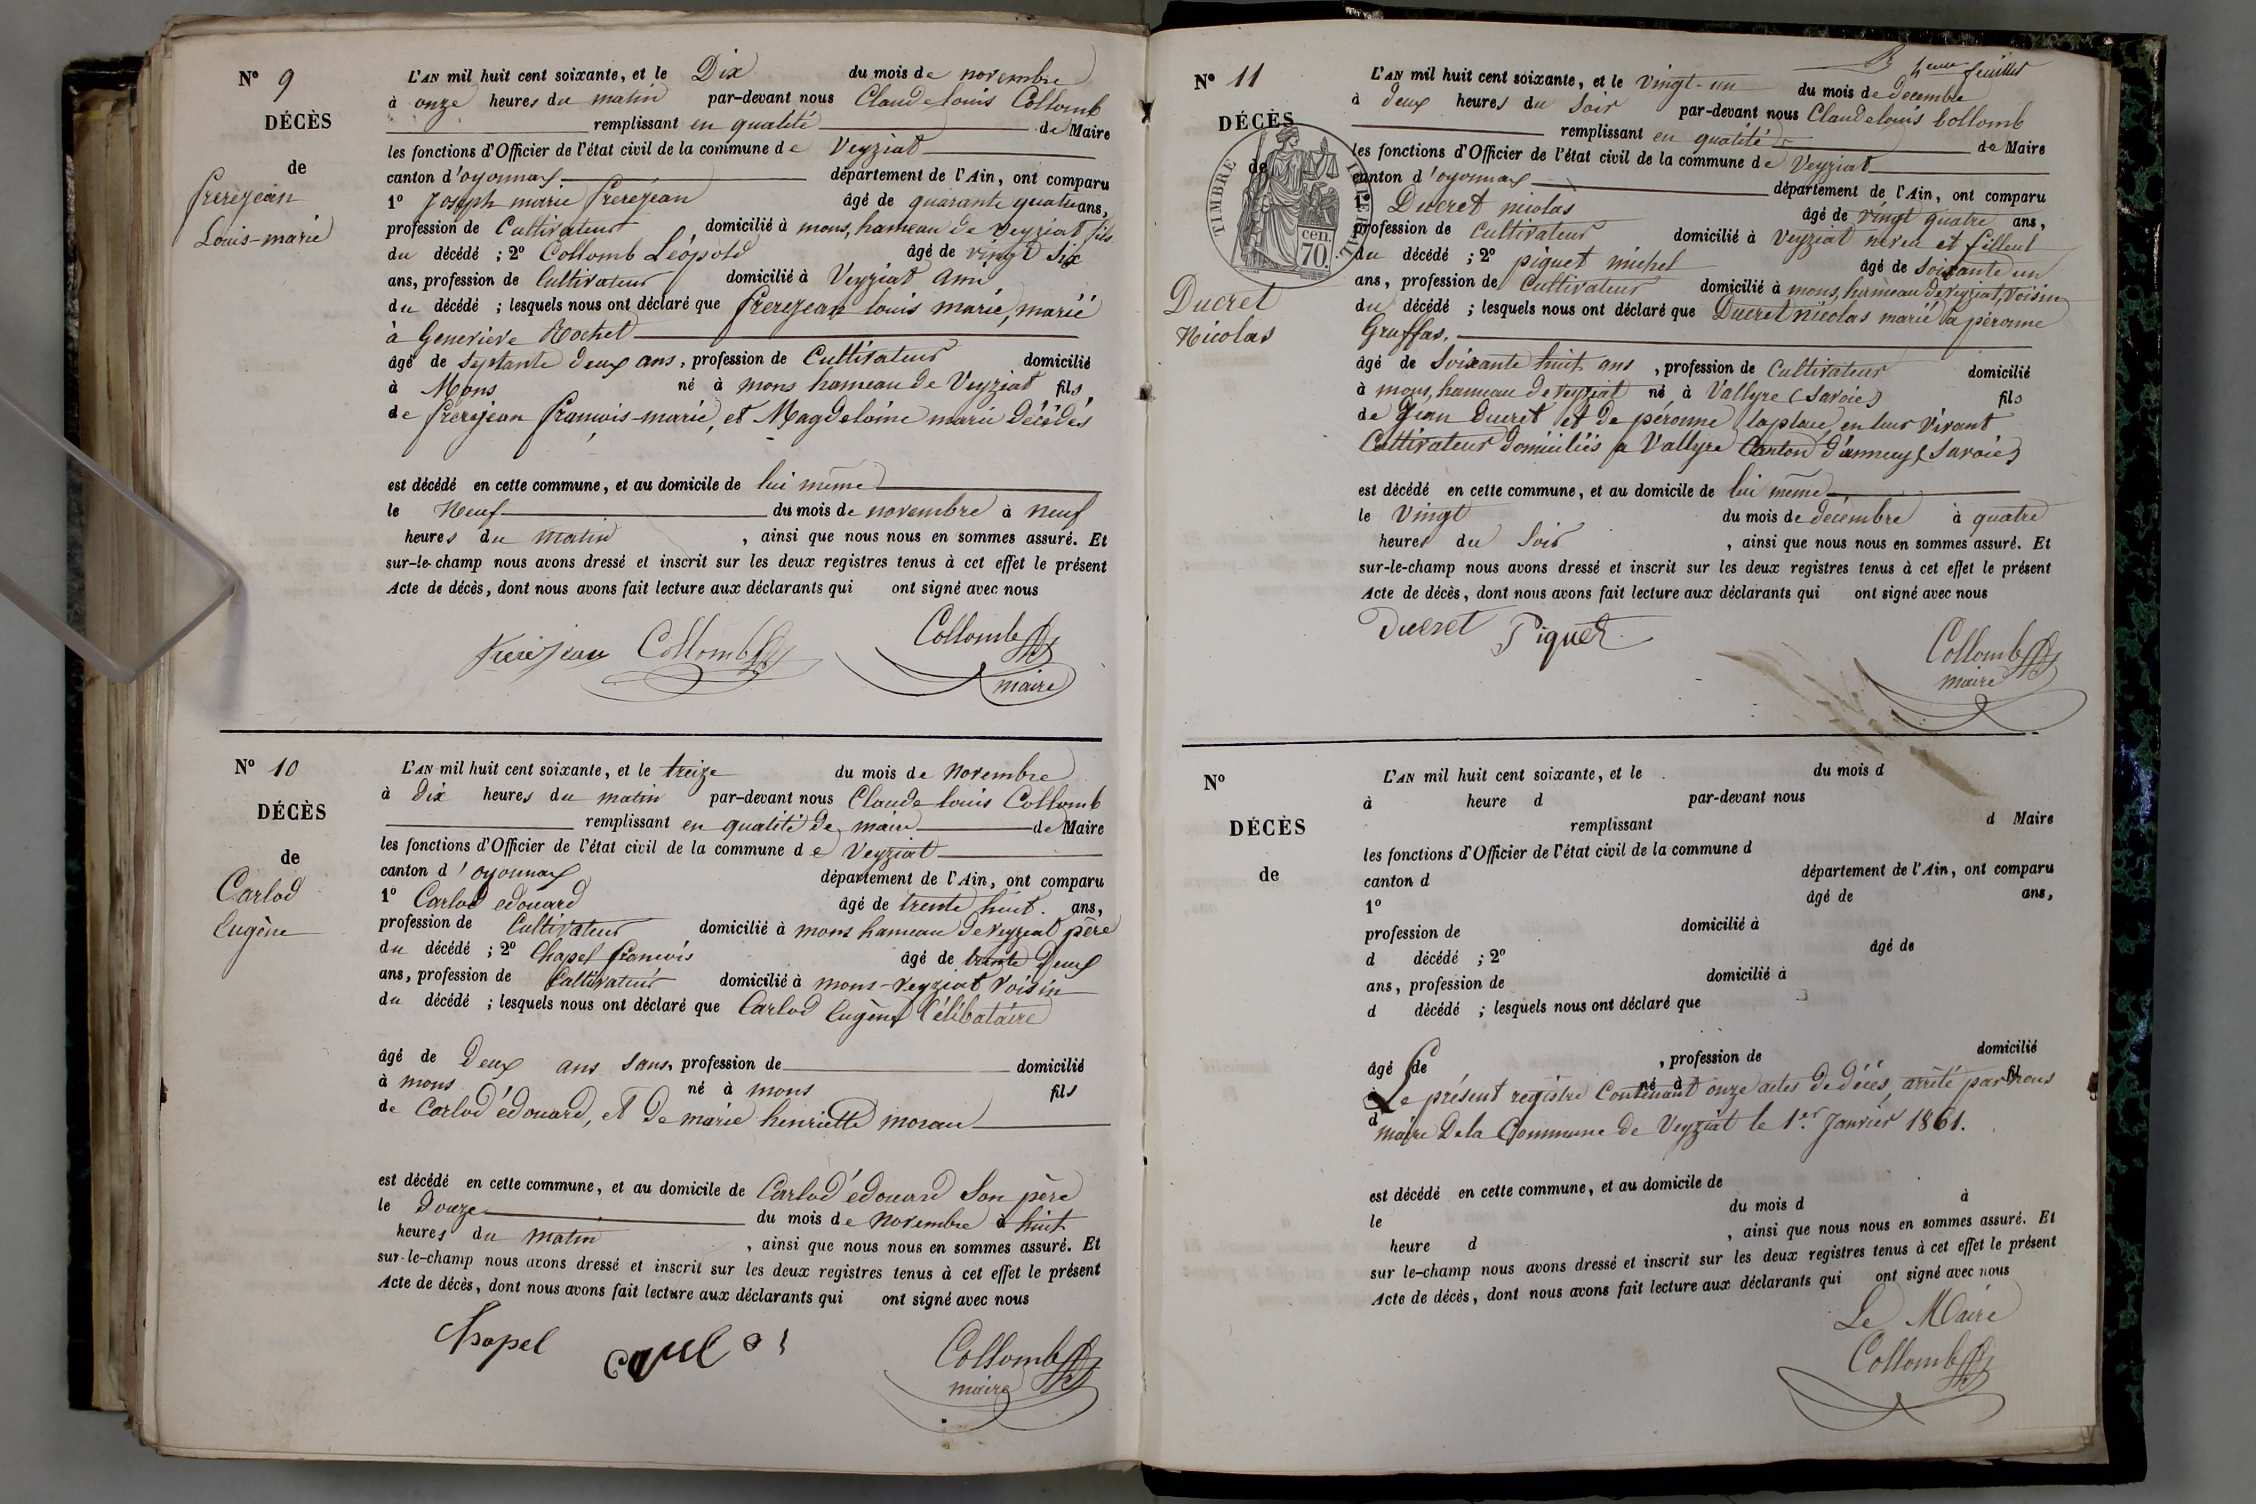 N° 9
DÉCÈS
de
frerejean
Louis-marie
L'AN mil huit cent soixante, et le Dix du mois de novembre
à onze heures du matin par-devant nous Claude louis Collomb
remplissant en qualité de Maire
les fonctions d'Officier de l'état civil de la commune de Veyziat
canton d'oyonnax département de l'Ain, ont comparu
1° Joseph marie frerejean âgé de quarante quatre ans,
profession de Cultivateur, domicilié à mons, hameau de Veyziat fils
du décédé ; 2° Collomb Léopold âgé de vingt six
ans, profession de Cultivateur domicilié à Veyziat ami
du décédé ; lesquels nous ont déclaré que frerejean louis marie, marié
à Geneviève Rochet
âgé de septante deux ans, profession de Cultivateur domicilié
à Mons né à mons hameau de Veyziat fils
de frerejean francois-marie, et Magdelaine marie décédés
est décédé en cette commune, et au domicile de lui même
le Neuf du mois de novembre à neuf
heures du matin, ainsi que nous nous en sommes assuré. Et
sur-le-champ nous avons dressé et inscrit sur les deux registres tenus à cet effet le présent
Acte de décès, dont nous avons fait lecture aux déclarants qui ont signé avec nous
frerejean Collomb Collomb
maire
N° 10
DÉCÈS
de
Carlod
Eugène
L'AN mil huit cent soixante, et le treize du mois de Novembre
à dix heures du matin par-devant nous Claude louis Collomb
remplissant en qualité de maire de Maire
les fonctions d'Officier de l'état civil de la commune de Veyziat
canton d'oyonnax département de l'Ain, ont comparu
1° Carlod edouard âgé de trente huit. ans,
profession de Cultivateur domicilié à mons hameau de Veyziat père
du décédé ; 2° Chapel francois âgé de trente deux
ans, profession de Cultivateur domicilié à mons-Veyziat voisin
du décédé ; lesquels nous ont déclaré que Carlod Eugène Célibataire
âgé de Deux ans sans, profession de domicilié
à mons né à mons fils
de Carlod édouard, et de marie henriette morau
est décédé en cette commune, et au domicile de Carlod édouard son père
le Douze du mois de Novembre à huit
heures du matin, ainsi que nous nous en sommes assuré. Et
sur-le-champ nous avons dressé et inscrit sur les deux registres tenus à cet effet le présent
Acte de décès, dont nous avons fait lecture aux déclarants qui ont signé avec nous
Chapel Collomb
maire
feuillet
N° 11
DÉCÈS
de
TIMBRE IMPERIAL
cen.
70.
Ducret
Nicolas
L'AN mil huit cent soixante, et le vingt-un du mois de decembre
à deux heures du soir par-devant nous Claude louis Collomb
remplissant en qualité de Maire
les fonctions d'Officier de l'état civil de la commune de Veyziat
canton d'oyonnax département de l'Ain, ont comparu
1° Ducret nicolas âgé de vingt quatre ans,
profession de Cultivateur domicilié à Veyziat neveu et filleul
du décédé ; 2° piquet michel âgé de soixante un
ans, profession de Cultivateur domicilié à mons, hameau de Veyziat, voisin
du décédé ; lesquels nous ont déclaré que Ducret nicolas marié à péronne
Gruffas.
âgé de soixante huit ans, profession de Cultivateur domicilié
à mons, hameau de Veyziat né à Vallyre (Savoie) fils
de Jean Ducret et de péronne laplace, en leur vivant
Cultivateur domiciliés a Vallyre Canton d'annecy (Savoie)
est décédé en cette commune, et au domicile de lui même
le Vingt du mois de décembre à quatre
heures du soir, ainsi que nous nous en sommes assuré. Et
sur-le-champ nous avons dressé et inscrit sur les deux registres tenus à cet effet le présent
Acte de décès, dont nous avons fait lecture aux déclarants qui ont signé avec nous
Ducret Piquet Collomb
maire
N°
DÉCÈS
de
L'AN mil huit cent soixante, et le du mois d
à heure d par-devant nous
remplissant d Maire
les fonctions d'Officier de l'état civil de la commune d
canton d département de l'Ain, ont comparu
1° âgé de ans,
profession de domicilié à
d décédé ; 2° âgé de
ans, profession de domicilié à
d décédé ; lesquels nous ont déclaré que
âgé de , profession de domicilié
à né à fil
Le présent registre Contenant onze actes de décès, arrêté par nous
d
maire De la Commune de Veyziat le 1er Janvier 1861.
est décédé en cette commune, et au domicile de
le du mois d à
heure d , ainsi que nous nous en sommes assuré. Et
sur le-champ nous avons dressé et inscrit sur les deux registres tenus à cet effet le présent
Acte de décès, dont nous avons fait lecture aux déclarants qui ont signé avec nous
Le Maire
Collomb